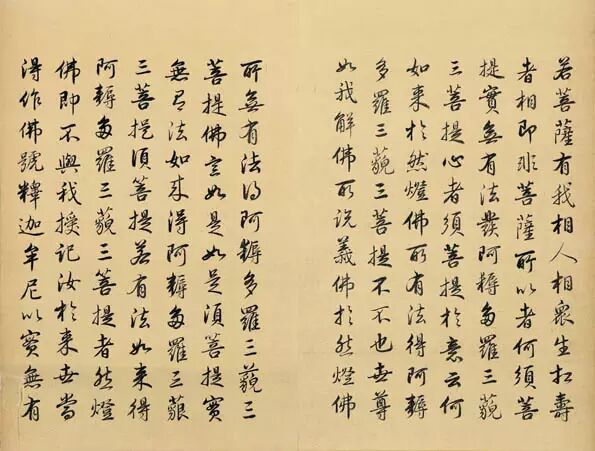 若菩薩有我相人相衆生相壽
者相即非菩薩所以者何須菩
提實無有法發阿耨多羅三藐
三菩提心者須菩提於意云何
如来於然燈佛所有法得阿耨
多羅三藐三菩提不不也世尊
如我解佛所説義佛於然燈佛
所無有法得阿耨多羅三藐三
菩提佛言如是如是須菩提實
無有法如来得阿耨多羅三藐
三菩提須菩提若有法如来得
阿耨多羅三藐三菩提者然燈
佛即不與我授記汝於来世當
得作佛號釋迦牟尼以實無有